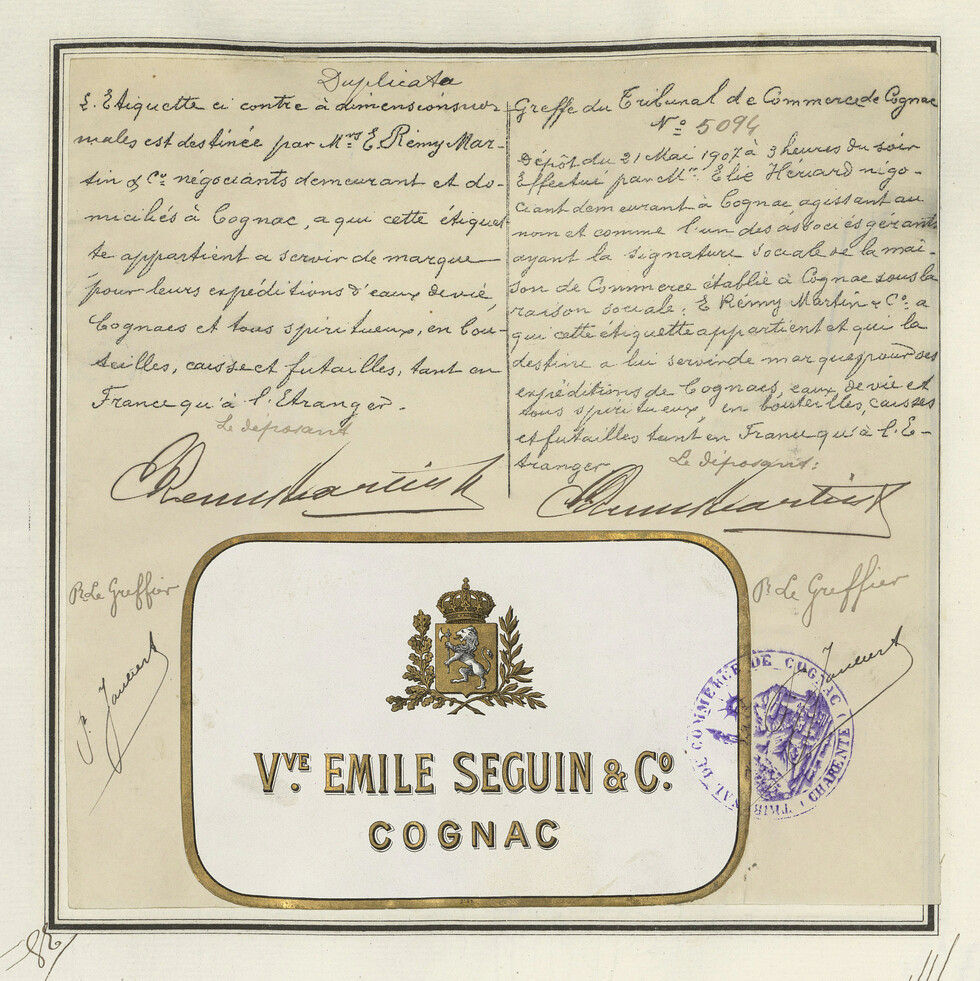 Duplicata
L. Etiquette ci contre à dimensions nor-
males est destinée par Mrs E. Rémy Mar-
tin & Co négociants demeurant et do-
miciliés à Cognac, a qui cette étiquet-
te appartient a servir de marque
pour leurs expéditions d'eaux de vie,
Cognacs et tous spiritueux, en bou-
teilles, caisse et futailles, tant en
France qu'à l'Etranger.
Le déposant
E Remy Martin & Co
Greffe du Tribunal de Commerce de Cognac
No 5094
Dépôt du 21 Mai 1907 à 3 heures du soir
Effectué par Mr. Elie Hériard négo-
ciant demeurant à Cognac agissant au
nom et comme l'un des associés gérants
ayant la signature sociale de la mai-
son de Commerce établie à Cognac sous la
raison sociale; E Rémy Martin & Co. a
qui cette étiquette appartient et qui la
destine a lui servir de marque pour ses
expéditions de Cognacs, eaux de vie et
tous spiritueux, en bouteilles, caisses
et futailles tant en France qu'à l'E-
tranger
Le déposant:
E Remy Martin & Co
P. Le Greffier
P. Le Greffier
VVE EMILE SEGUIN & Co.
COGNAC
TRIBUNAL DE COMMERCE DE COGNAC (CHARENTE)
82